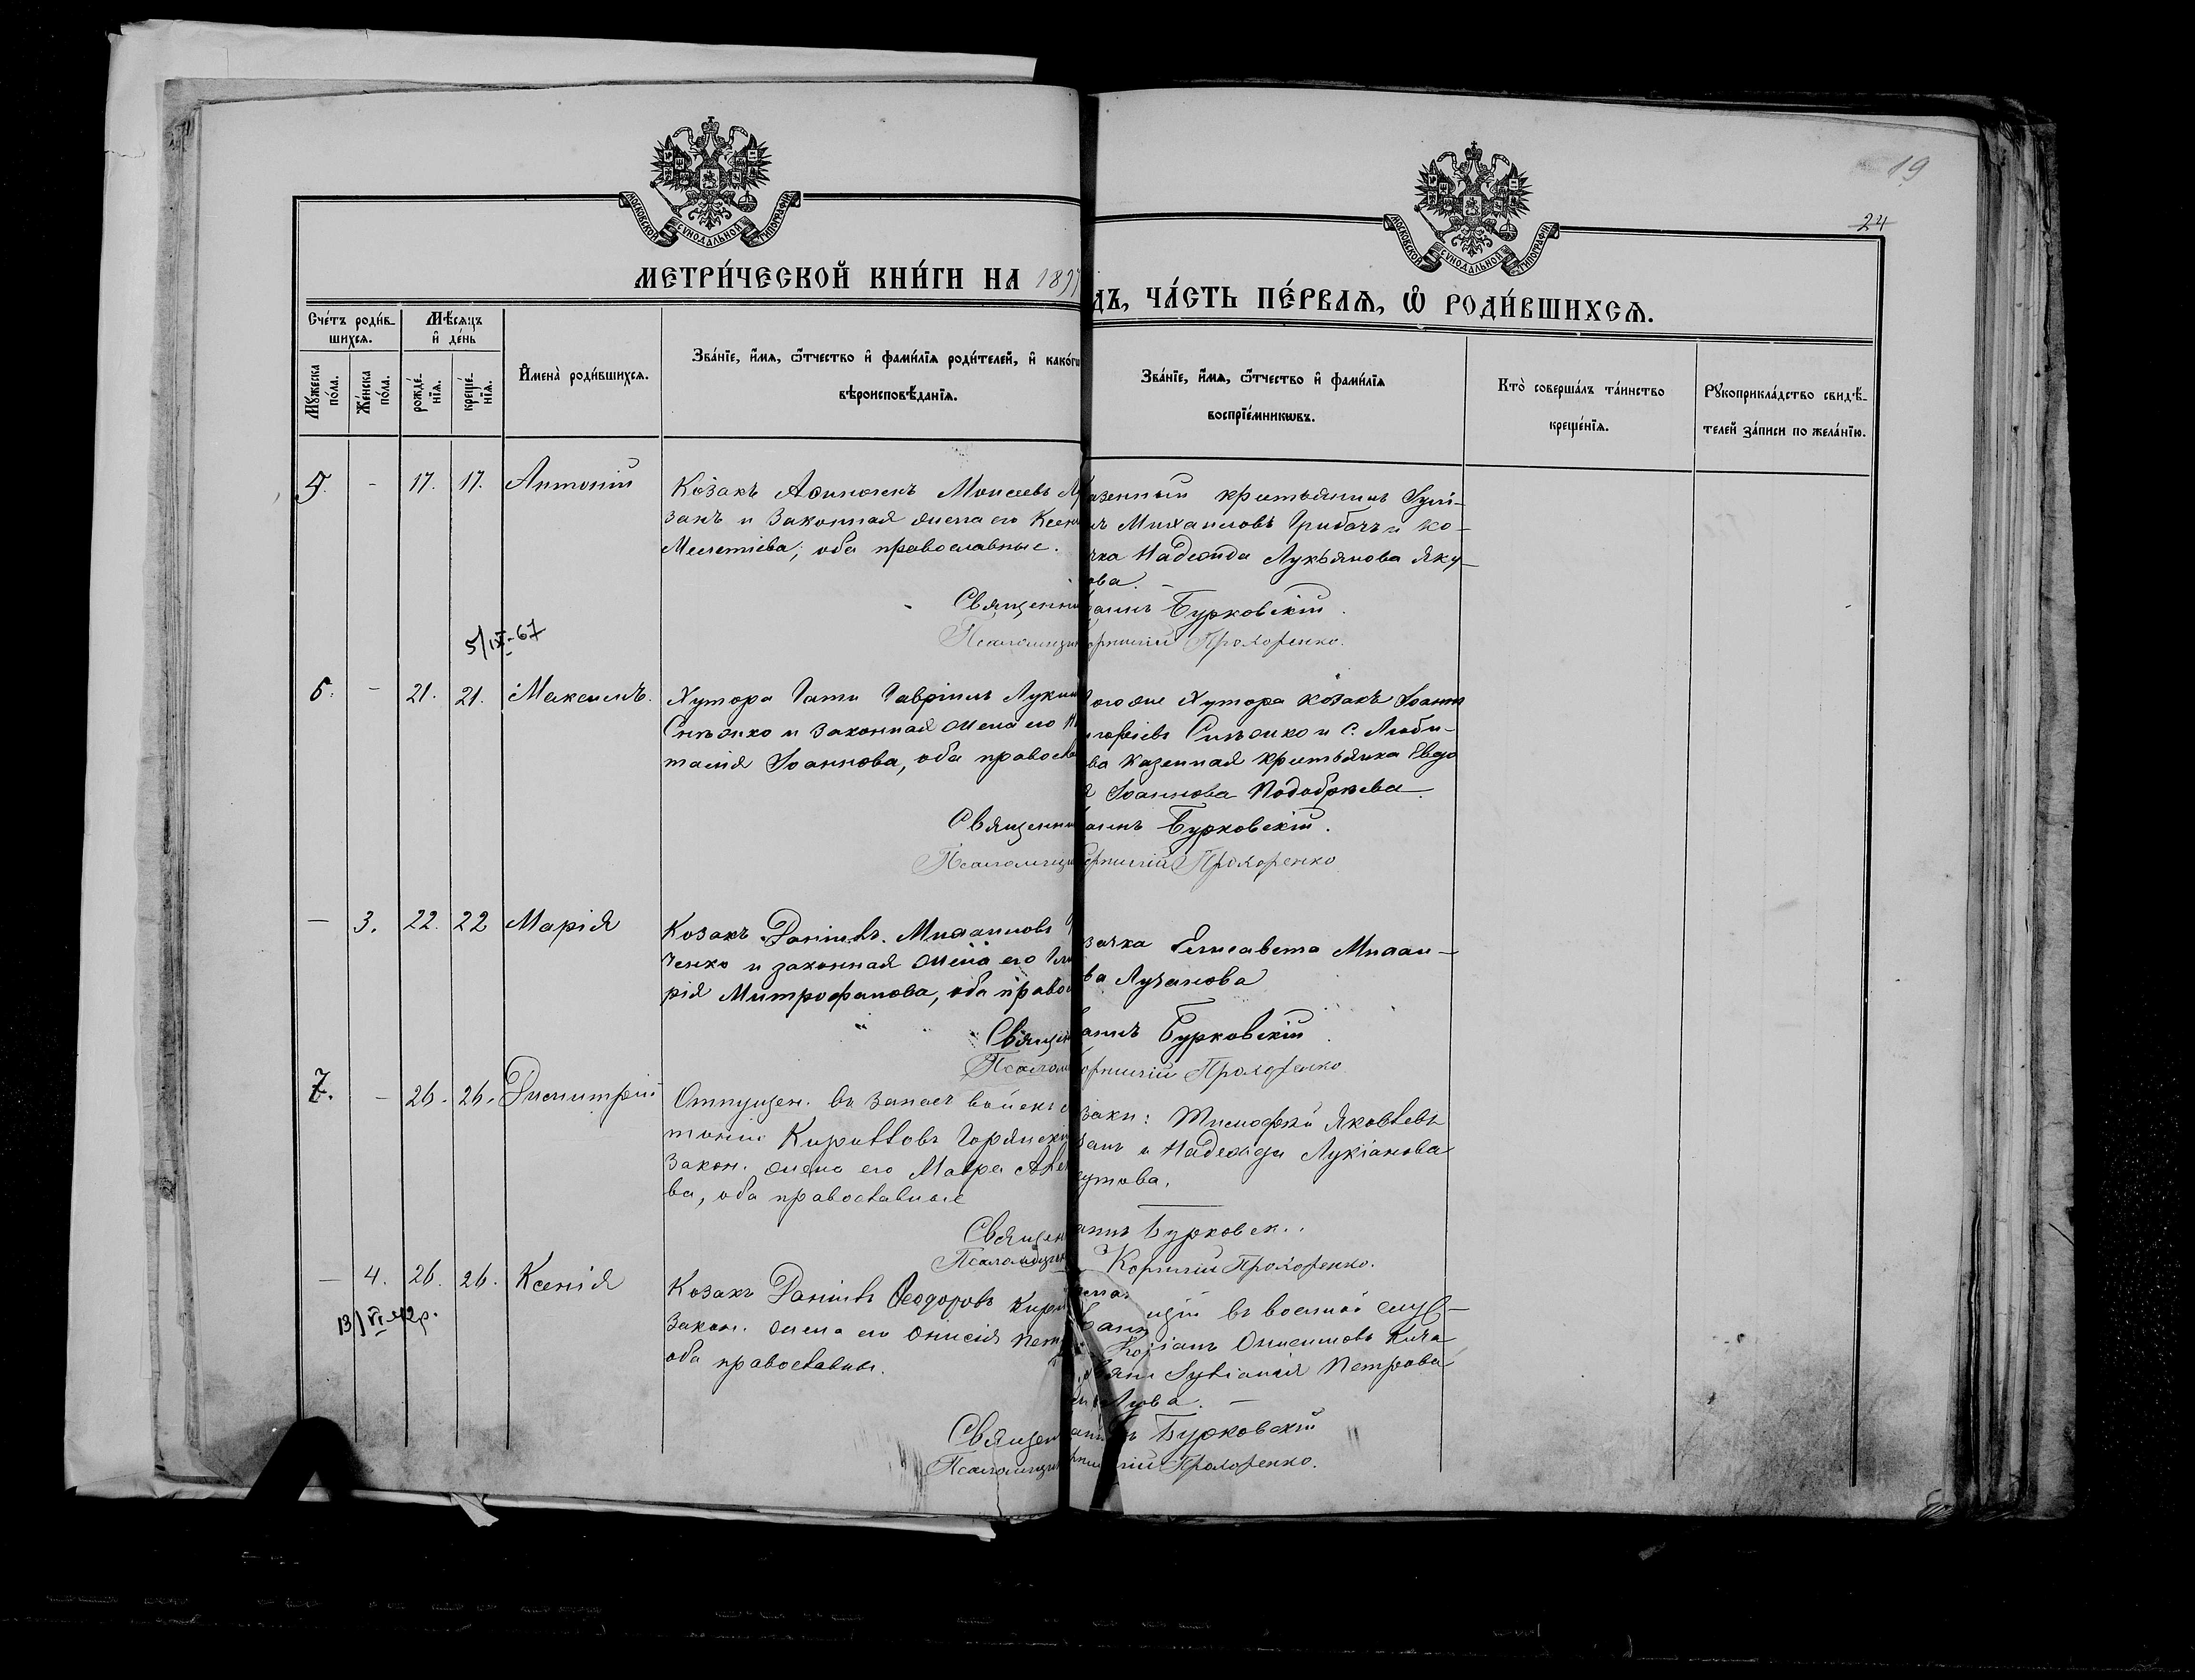 19
24
МОСКОВСКОЙ СУНОДАЛЬНОЙ ТИПОГРАФІИ
МОСКОВСКОЙ СУНОДАЛЬНОЙ ТИПОГРАФІИ
МЕТРИ́ЧЕСКОЙ КНИ́ГИ НА 189
ДЪ, ЧА́СТЬ ПЕ́РВАѦ, Ѽ РОДИ́ВШИХСѦ.
Сче́тъ роди́в-
шихсѧ.
Мѣ́сѧцъ
и҆ де́нь
Мꙋ́жеска по́ла.
Же́нска по́ла.
рожде́-
нїѧ.
креще́-
нїѧ.
И҆мена̀ роди́вшихсѧ.
Зва́нїе, и҆́мѧ, ѻ҆́тчество и҆ фами́лїѧ роди́телей, и҆ како́гѡ
вѣроисповѣ́данїѧ.
Зва́нїе, и҆́мѧ, ѻ҆́тчество и҆ фами́лїѧ
воспрїе́мникѡвъ.
Кто̀ соверша́лъ та́инство
креще́нїѧ.
Рꙋкоприкла́дство свидѣ́-
телей за́писи по жела́нїю.
5. - 17. 17. Антоній
Козакъ Моисеевъ
занъ и законная жена его Ксен
Мелетіева; оба православные.
азенный крестьянинъ Іулі-
Михаиловъ Грибачъ и ко-
чка Надежда Лукьянова Яку-
ова.
Священни
аннъ Бурковскій.
Псаломщи
орнилій Прохоренко.
5/IX-67
6. - 21. 21. Максимъ.
Хутора Гати Гавріилъ Луки
Снѣжко и законная жена его
талія Іоаннова, оба правосла
ого же Хутора козакъ Іоанн
Снѣжко и с. Люби-
ва казенная крестьянка Евдо
Іоаннова Подобрѣева.
Священни
аннъ Бурковскій.
Псаломщи
орнилій Прохоренко
— 3. 22. 22 Марія
Козакъ Даніилъ Михаиловъ
ченко и законная жена его Гли
рія Митрофанова, оба право
зачка Елисавета Михаи-
ва Лучанова
Священ
аннъ Бурковскій
Псалом
орнилій Прохоренко
7. - 26. 26. Димитрій
Отпущен. въ запасъ войскъ
тоній Кирилловъ Горянскі
закон. жена его Мавра
ва, оба православные
заки: Тимофей Яковлевъ
занъ и Надежда Лукіанова
кутова.
Священ
аннъ Бурковск..
Псаломщик
Корнилій Прохоренко.
— 4. 26. 26. Ксенія
13/VI 42р.
Козакъ Даніилъ Ѳеодоровъ
закон. жена его Онисія Пет
оба православны.
щій въ военной служ-
Онисимовъ
Іуліанія Петрова
Священ
Бурковскій
Псаломщи
Прохоренко.